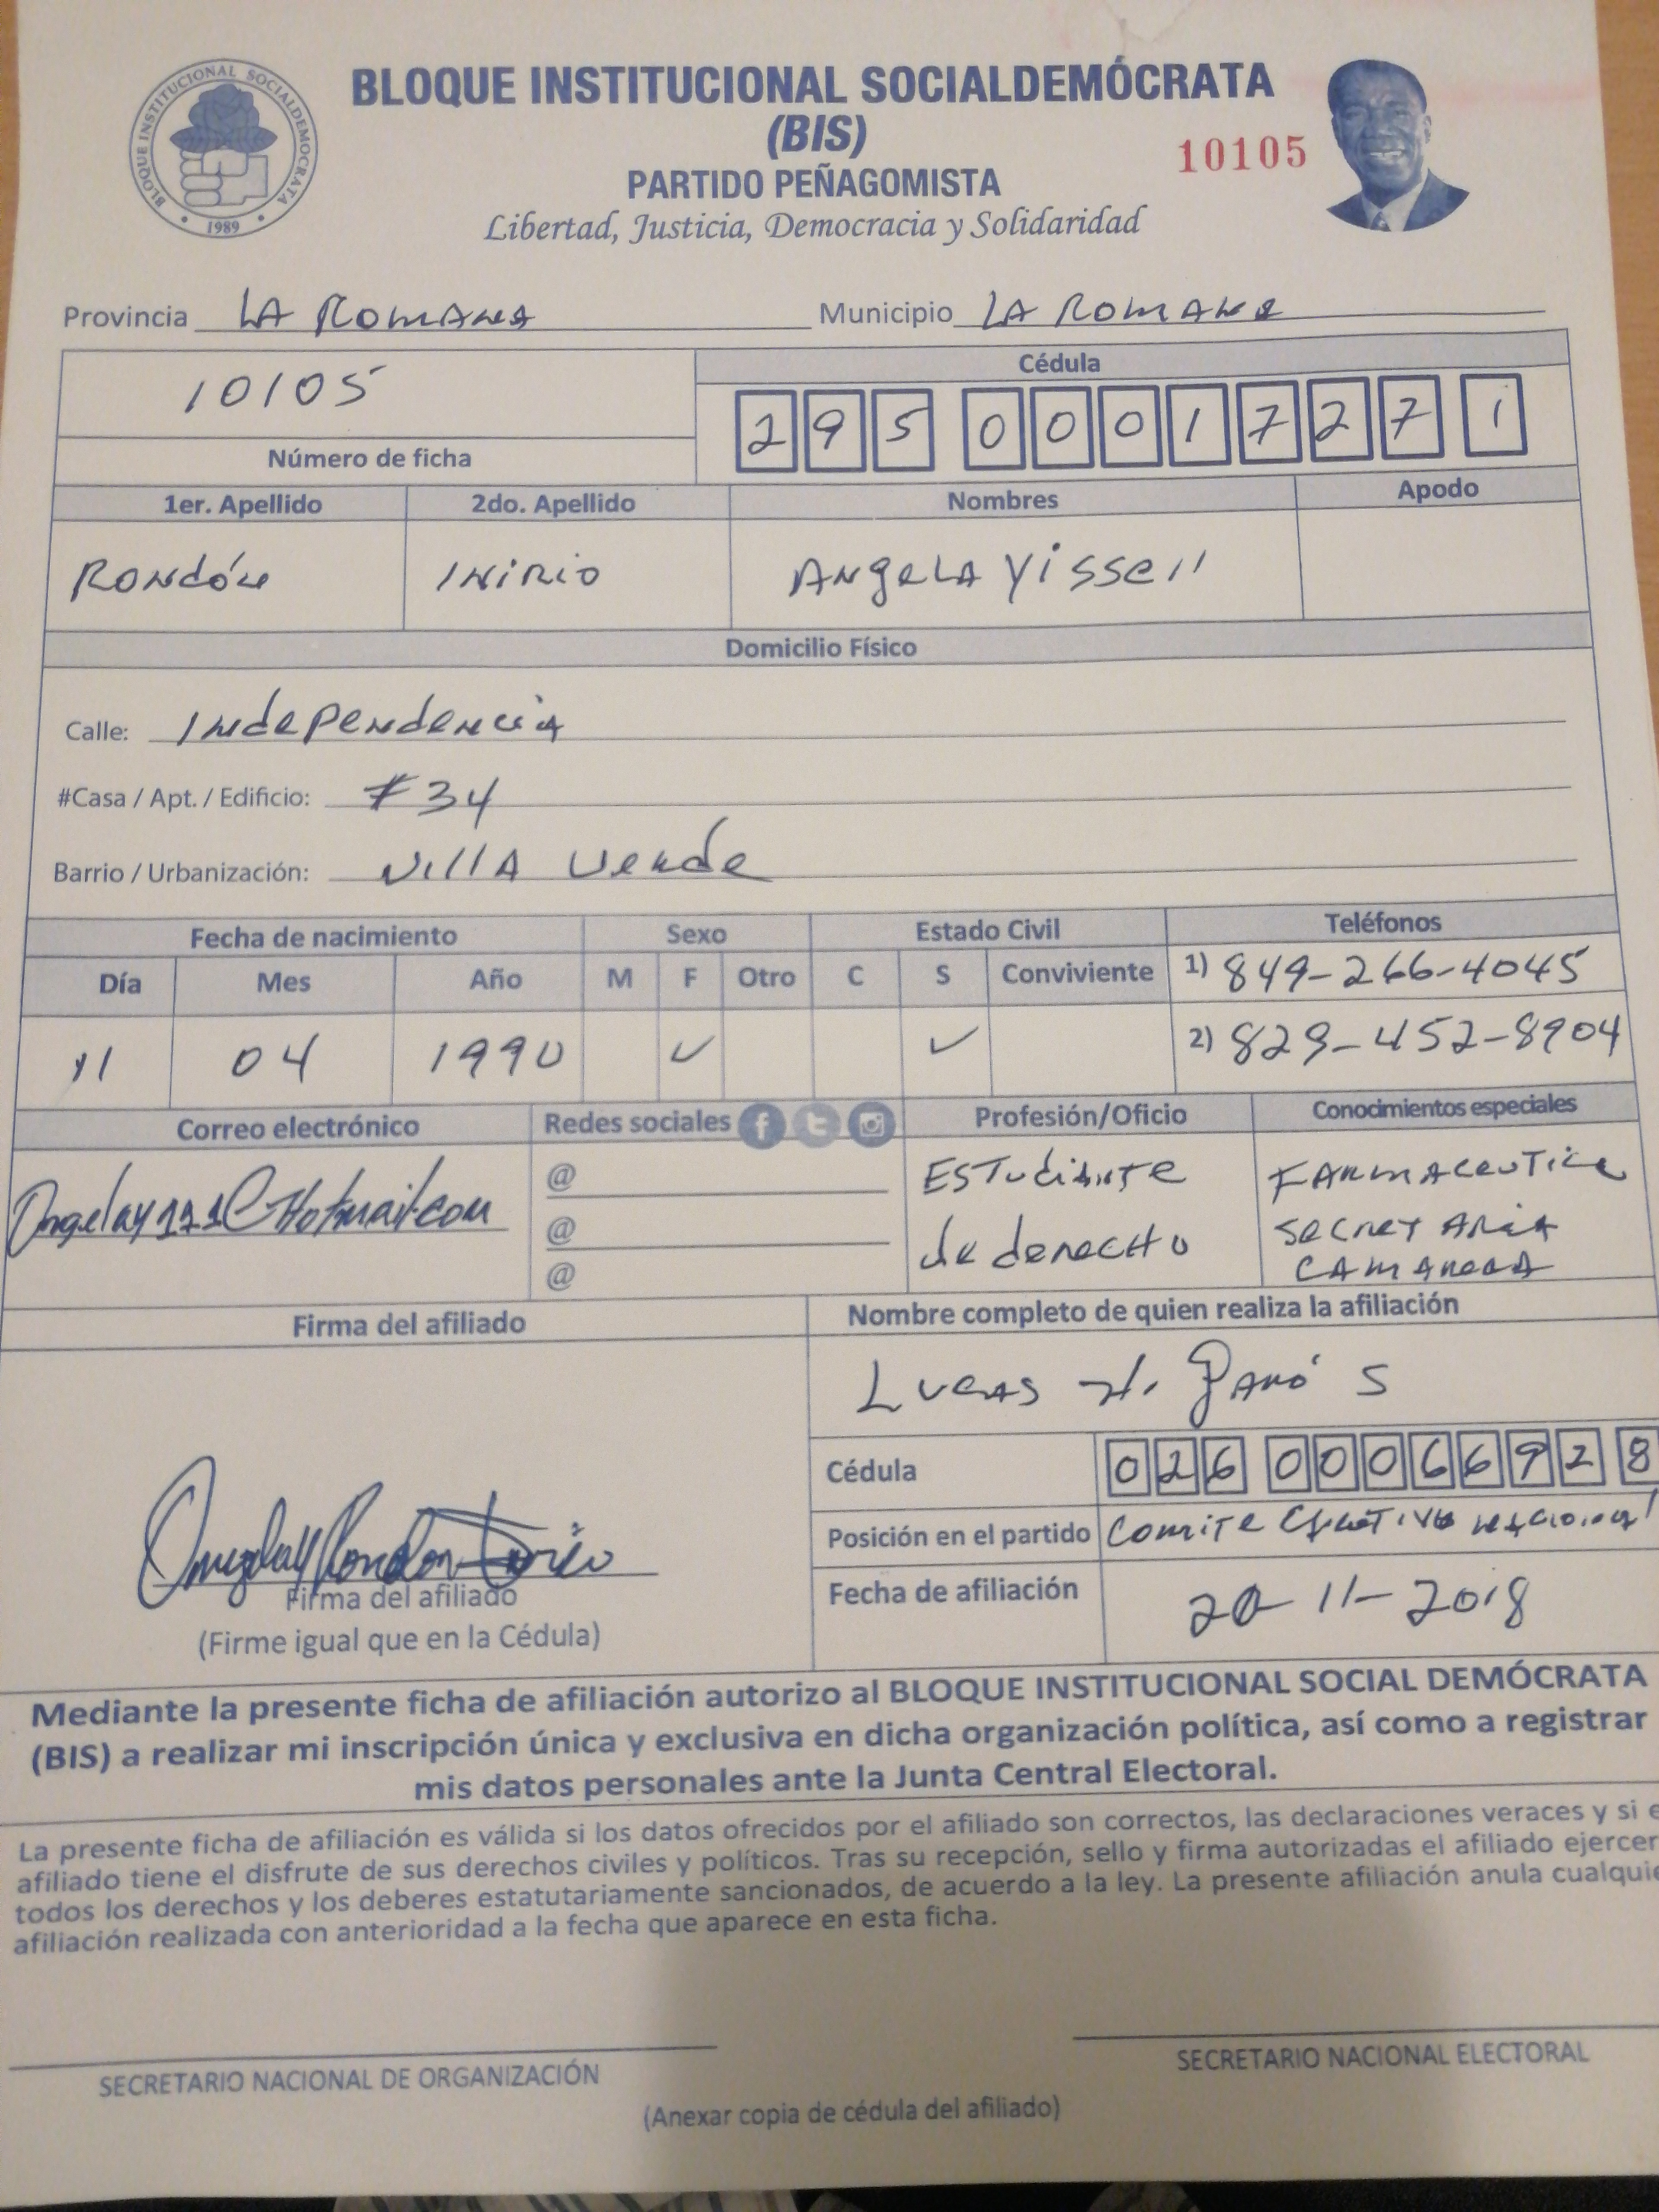 BLOQUE INSTITUCIONAL SOCIALDEMÓCRATA
BLOQUE INSTITUCIONAL SOCIALDEMOCRATA
• 1989 •
(BIS)
10105
PARTIDO PEÑAGOMISTA
Libertad, Justicia, Democracia y Solidaridad
Provincia LA ROMANA Municipio LA ROMANA
10105
Número de ficha
Cédula
295 0001727 1
1er. Apellido 2do. Apellido Nombres Apodo
RONDÓN INIRIO ANGELA YISSELL
Domicilio Físico
Calle: INdePeNdeNciA
#Casa / Apt. / Edificio: #34
Barrio / Urbanización: VIllA VeRde
Fecha de nacimiento Sexo Estado Civil Teléfonos
Día Mes Año M F Otro C S Conviviente 1) 849-266-4045
11 04 1990 ✓ ✓ 2) 829-452-8904
Correo electrónico Redes sociales Profesión/Oficio Conocimientos especiales
@ ESTudiANTe FARMACeuTicA
@ de deRecHo SecReTARiA
@ CAMAReRA
Firma del afiliado Nombre completo de quien realiza la afiliación
LucAS
Cédula 026 0006692 8
Posición en el partido COMITE EJecuTIVO NACIONAl
Fecha de afiliación 20-11-2018
Firma del afiliado
(Firme igual que en la Cédula)
Mediante la presente ficha de afiliación autorizo al BLOQUE INSTITUCIONAL SOCIAL DEMÓCRATA
(BIS) a realizar mi inscripción única y exclusiva en dicha organización política, así como a registrar
mis datos personales ante la Junta Central Electoral.
La presente ficha de afiliación es válida si los datos ofrecidos por el afiliado son correctos, las declaraciones veraces y si e
afiliado tiene el disfrute de sus derechos civiles y políticos. Tras su recepción, sello y firma autorizadas el afiliado ejercer
todos los derechos y los deberes estatutariamente sancionados, de acuerdo a la ley. La presente afiliación anula cualquie
afiliación realizada con anterioridad a la fecha que aparece en esta ficha.
SECRETARIO NACIONAL DE ORGANIZACIÓN SECRETARIO NACIONAL ELECTORAL
(Anexar copia de cédula del afiliado)